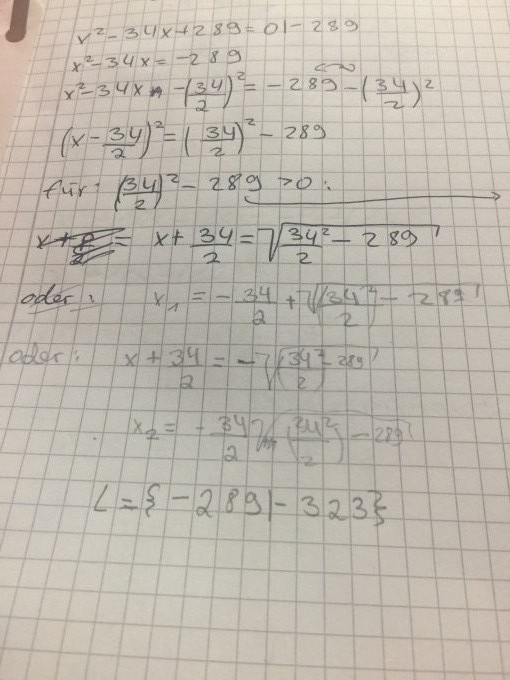 x² - 34x + 289 = 0 | - 289
x² - 34x = -289
x² - 34x - (34/2)² = -289 - (34/2)²
(x - 34/2)² = (34/2)² - 289
für: (34/2)² - 289 > 0:
= x + 34/2 = √(34²/2 - 289)
oder: x₁ = - 34/2 + √((34/2)² - 289)
oder: x + 34/2 = -√((34/2)² - 289)
x₂ = - 34/2 √((34²/2) - 289)
L = {-289 | -323}